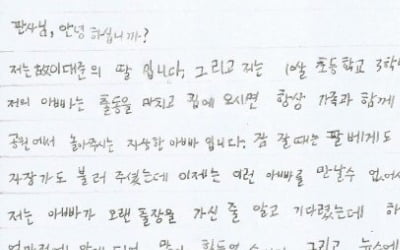 판사님, 안녕 하십니까?
저는 故이대준의 딸 입니다, 그리고 저는 10살 초등학교 3학년
저의 아빠는 출동을 마치고 집에 오시면 항상 가족과 함께
공원에서 놀아주시는 자상한 아빠 입니다, 잠 잘때는 팔 베게도
자장가도 불러 주셨는데 이제는 이런 아빠를 만날수 없어서
저는 아빠가 오랜 출장을 가신 줄 알고 기다렸는데
그리고 뉴스에